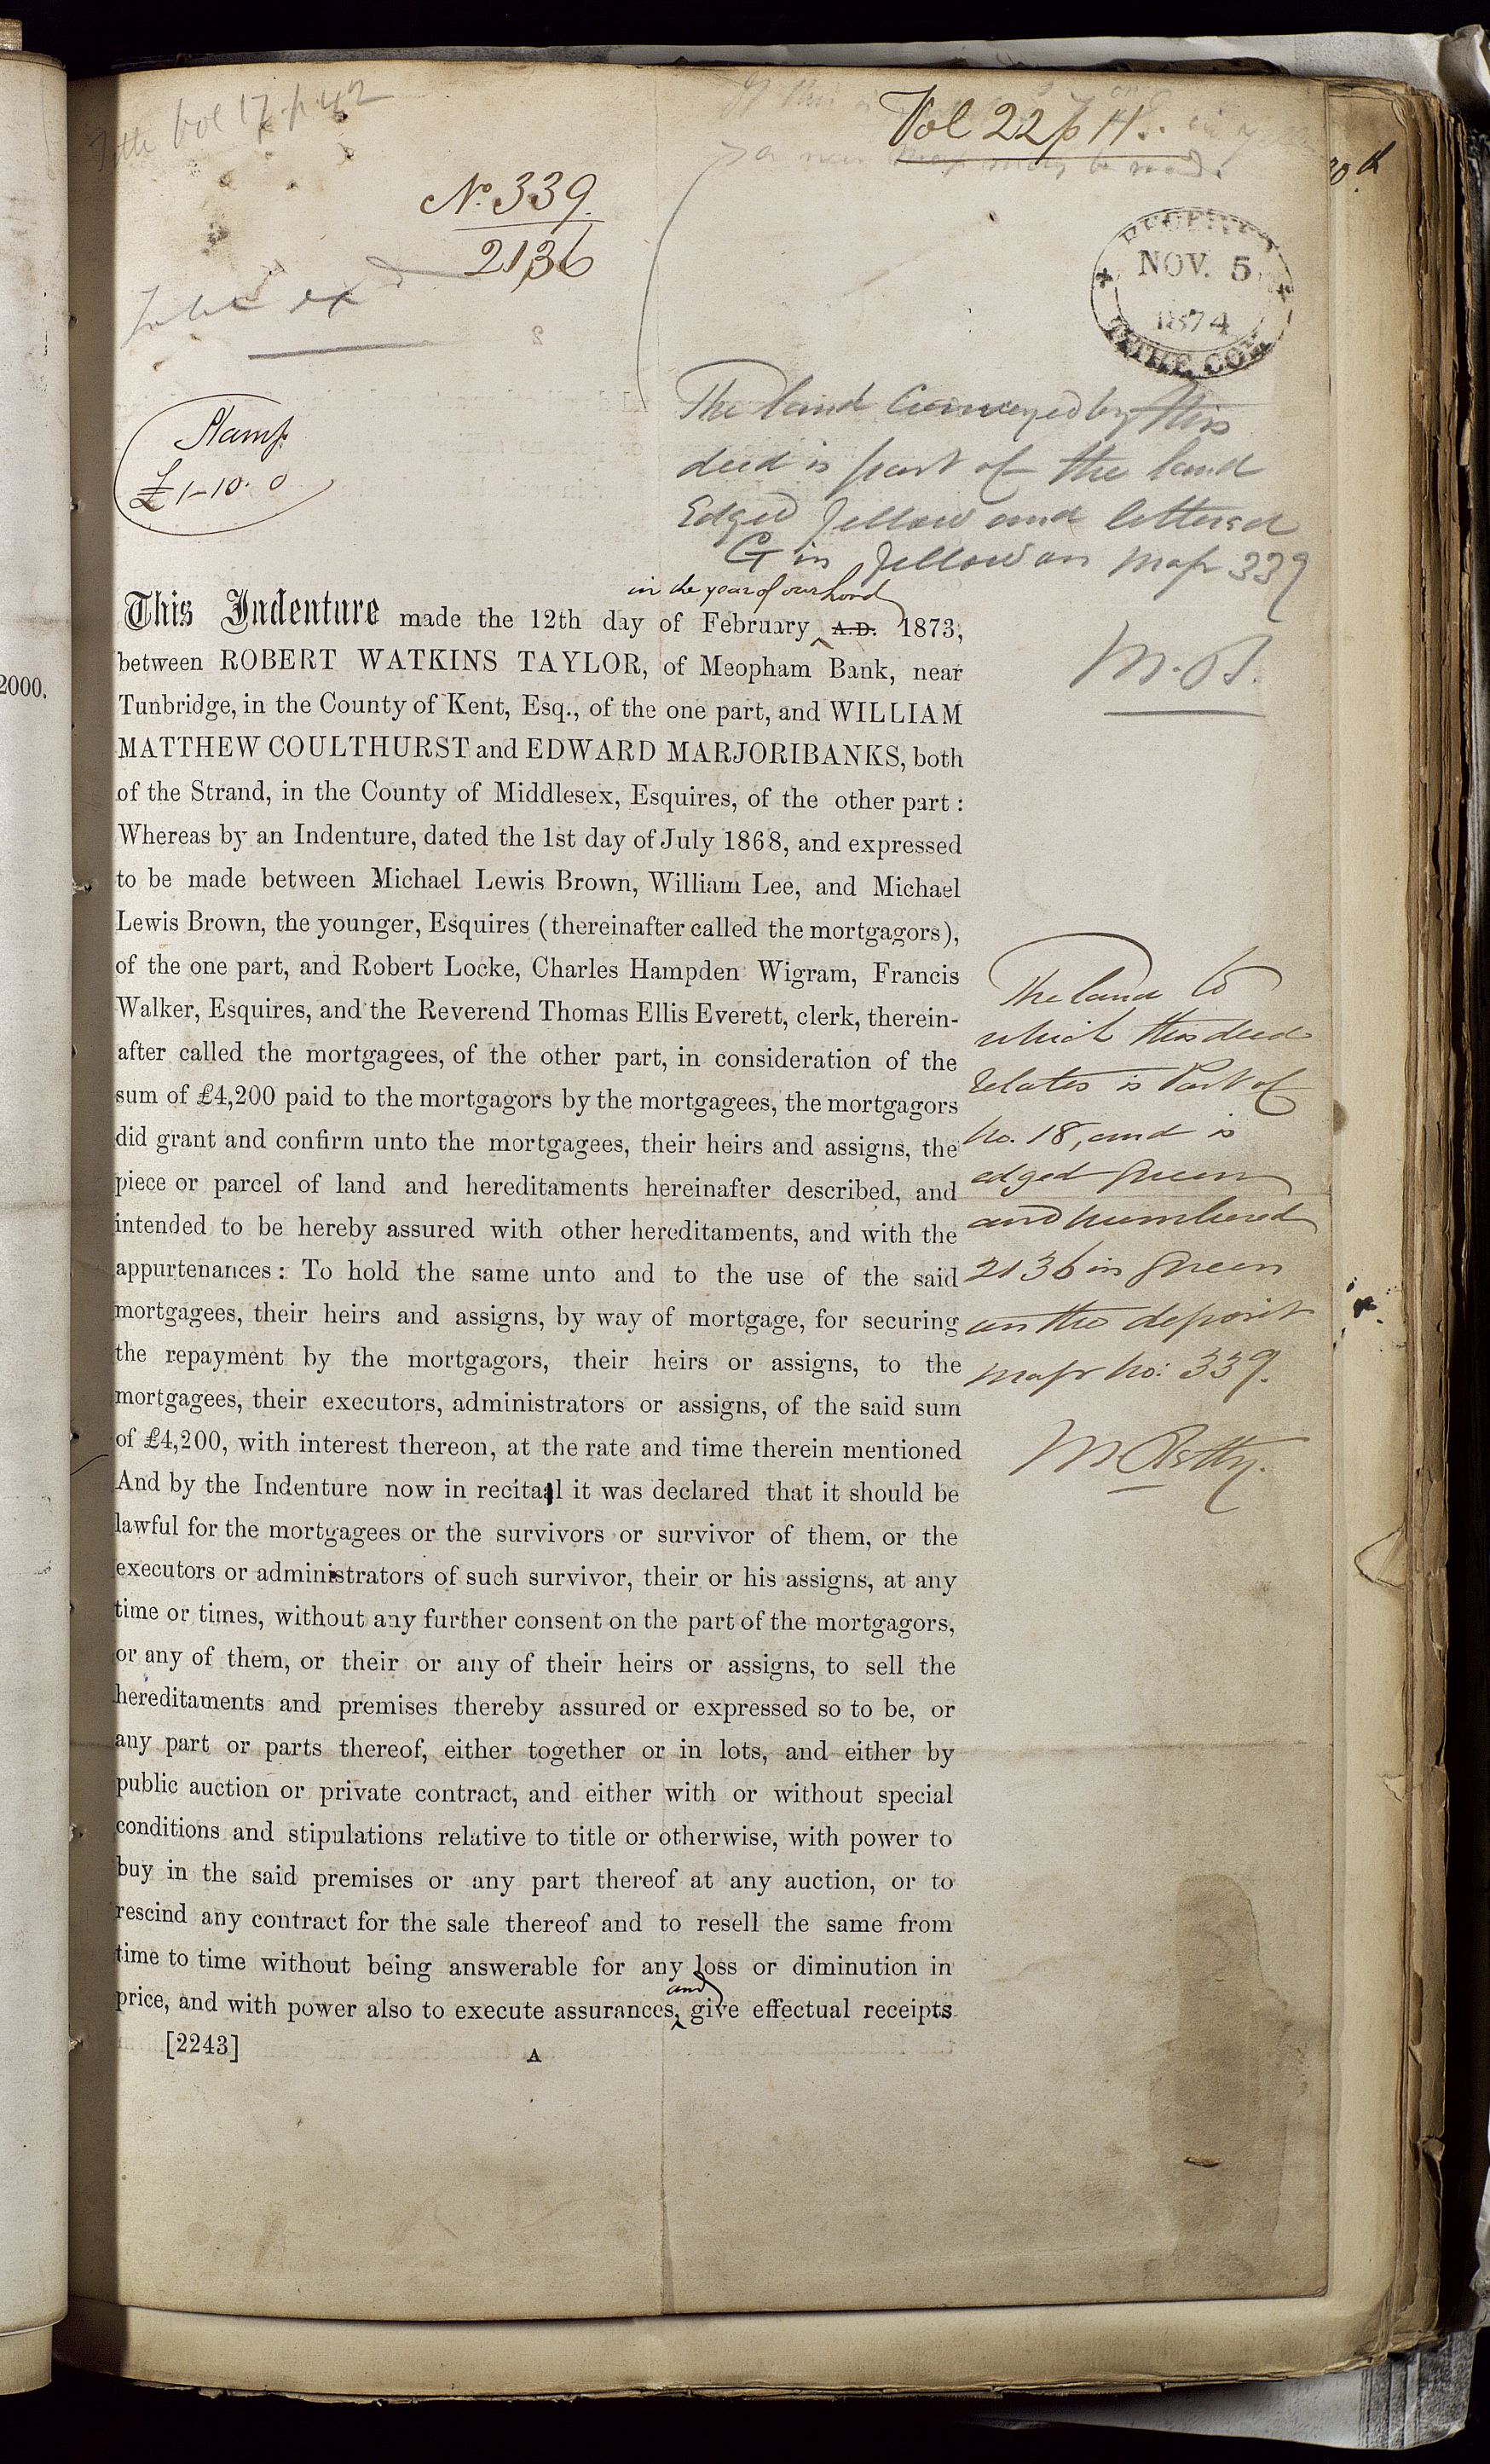 Vol 17. p. 42
Vol 22 p 11.
No. 339.
2136
RECEIVED
NOV. 5
1874
TITHE COM
Stamp
£1-10.0
The land Conveyed by this
deed is part of the land
Edged Yellow and lettered
G in Yellow on Map 339
M.B.
in the year of our Lord
This Indenture made the 12th day of February A.D. 1873,
between ROBERT WATKINS TAYLOR, of Meopham Bank, near
Tunbridge, in the County of Kent, Esq., of the one part, and WILLIAM
MATTHEW COULTHURST and EDWARD MARJORIBANKS, both
of the Strand, in the County of Middlesex, Esquires, of the other part:
Whereas by an Indenture, dated the 1st day of July 1868, and expressed
to be made between Michael Lewis Brown, William Lee, and Michael
Lewis Brown, the younger, Esquires (thereinafter called the mortgagors),
of the one part, and Robert Locke, Charles Hampden Wigram, Francis
Walker, Esquires, and the Reverend Thomas Ellis Everett, clerk, therein-
after called the mortgagees, of the other part, in consideration of the
sum of £4,200 paid to the mortgagors by the mortgagees, the mortgagors
did grant and confirm unto the mortgagees, their heirs and assigns, the
piece or parcel of land and hereditaments hereinafter described, and
intended to be hereby assured with other hereditaments, and with the
appurtenances: To hold the same unto and to the use of the said
mortgagees, their heirs and assigns, by way of mortgage, for securing
the repayment by the mortgagors, their heirs or assigns, to the
mortgagees, their executors, administrators or assigns, of the said sum
of £4,200, with interest thereon, at the rate and time therein mentioned
And by the Indenture now in recital it was declared that it should be
lawful for the mortgagees or the survivors or survivor of them, or the
executors or administrators of such survivor, their or his assigns, at any
time or times, without any further consent on the part of the mortgagors,
or any of them, or their or any of their heirs or assigns, to sell the
hereditaments and premises thereby assured or expressed so to be, or
any part or parts thereof, either together or in lots, and either by
public auction or private contract, and either with or without special
conditions and stipulations relative to title or otherwise, with power to
buy in the said premises or any part thereof at any auction, or to
rescind any contract for the sale thereof and to resell the same from
time to time without being answerable for any loss or diminution in
and
price, and with power also to execute assurances, give effectual receipts
[2243]
A
The land to
which this deed
relates is Part of
No. 18, and is
edged green
and numbered
2136 in green
on the deposit
map No: 339.
2000.